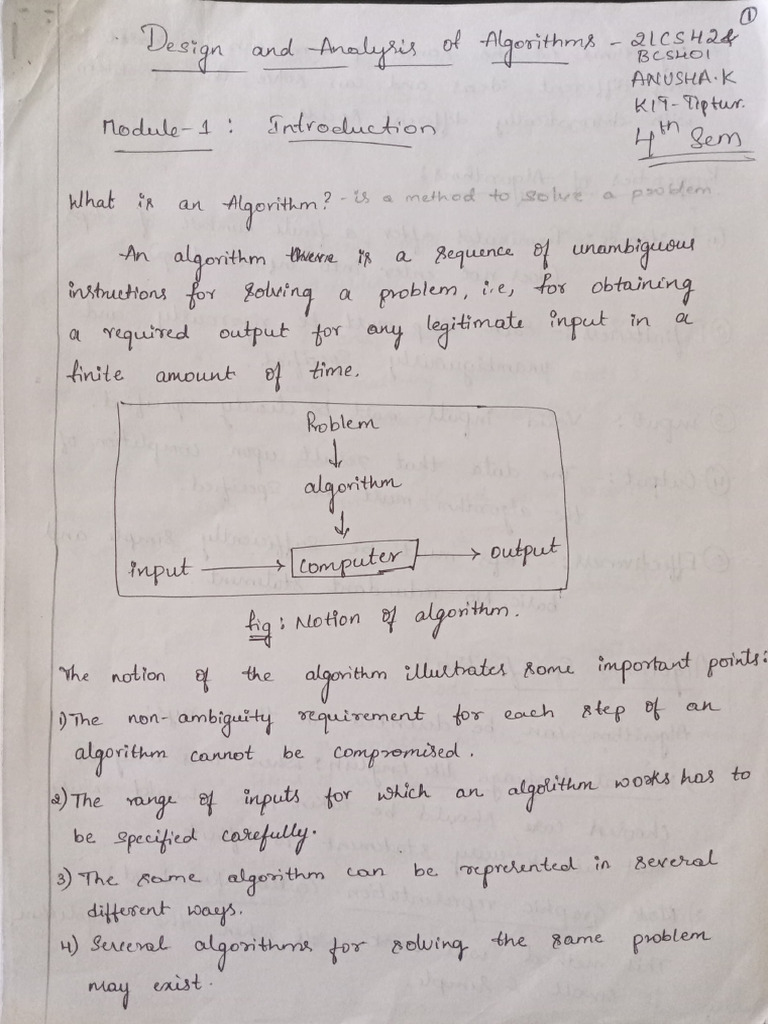 1
Design and Analysis of Algorithms - 21CS42 &
BCS401
ANUSHA.K
KIT-Tiptur.
4th Sem
Module-1 : Introduction
What is an Algorithm? - is a method to solve a problem
An algorithm is a sequence of unambiguous
instructions for solving a problem, i.e, for obtaining
a required output for any legitimate input in a
finite amount of time.
Problem
↓
algorithm
↓
input → computer → output
fig : Notion of algorithm.
The notion of the algorithm illustrates some important points:
1) The non-ambiguity requirement for each step of an
algorithm cannot be compromised.
2) The range of inputs for which an algorithm works has to
be specified carefully.
3) The same algorithm can be represented in several
different ways.
4) Several algorithms for solving the same problem
may exist.